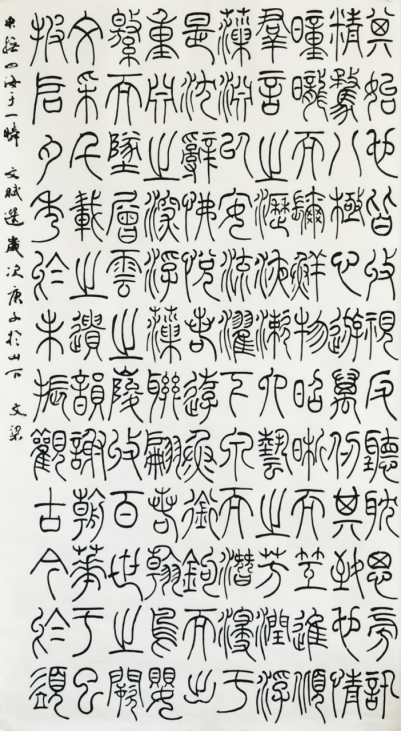 其始也皆收視反聽耽思旁訊
精騖八極心遊萬仞其致也情
曈曨而彌鮮物昭晰而互進傾
羣言之瀝液漱六藝之芳潤浮
藻淵以安流濯下泉而潛浸于
是沈辭怫悅若遊魚銜鉤而出
重淵之深浮藻聯翩若翰鳥嬰
繳而墜層雲之峻收百世之闕
文采千載之遺韻謝朝華于已
披啟夕秀於未振觀古今於須
臾撫四海于一瞬 文賦選 歲次庚子於山下 文梁